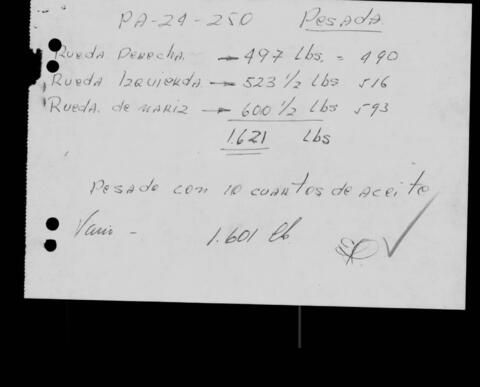 PA-24-250 PESADA
RUEDA DERECHA → 497 Lbs. = 490
RUEDA IZQUIERDA → 523 1/2 Lbs 516
RUEDA. de NARIZ → 600 1/2 Lbs 593
1.621 Lbs
PESADO CON 10 CUARTOS DE ACEITE
Vacio - 1.601 lb.